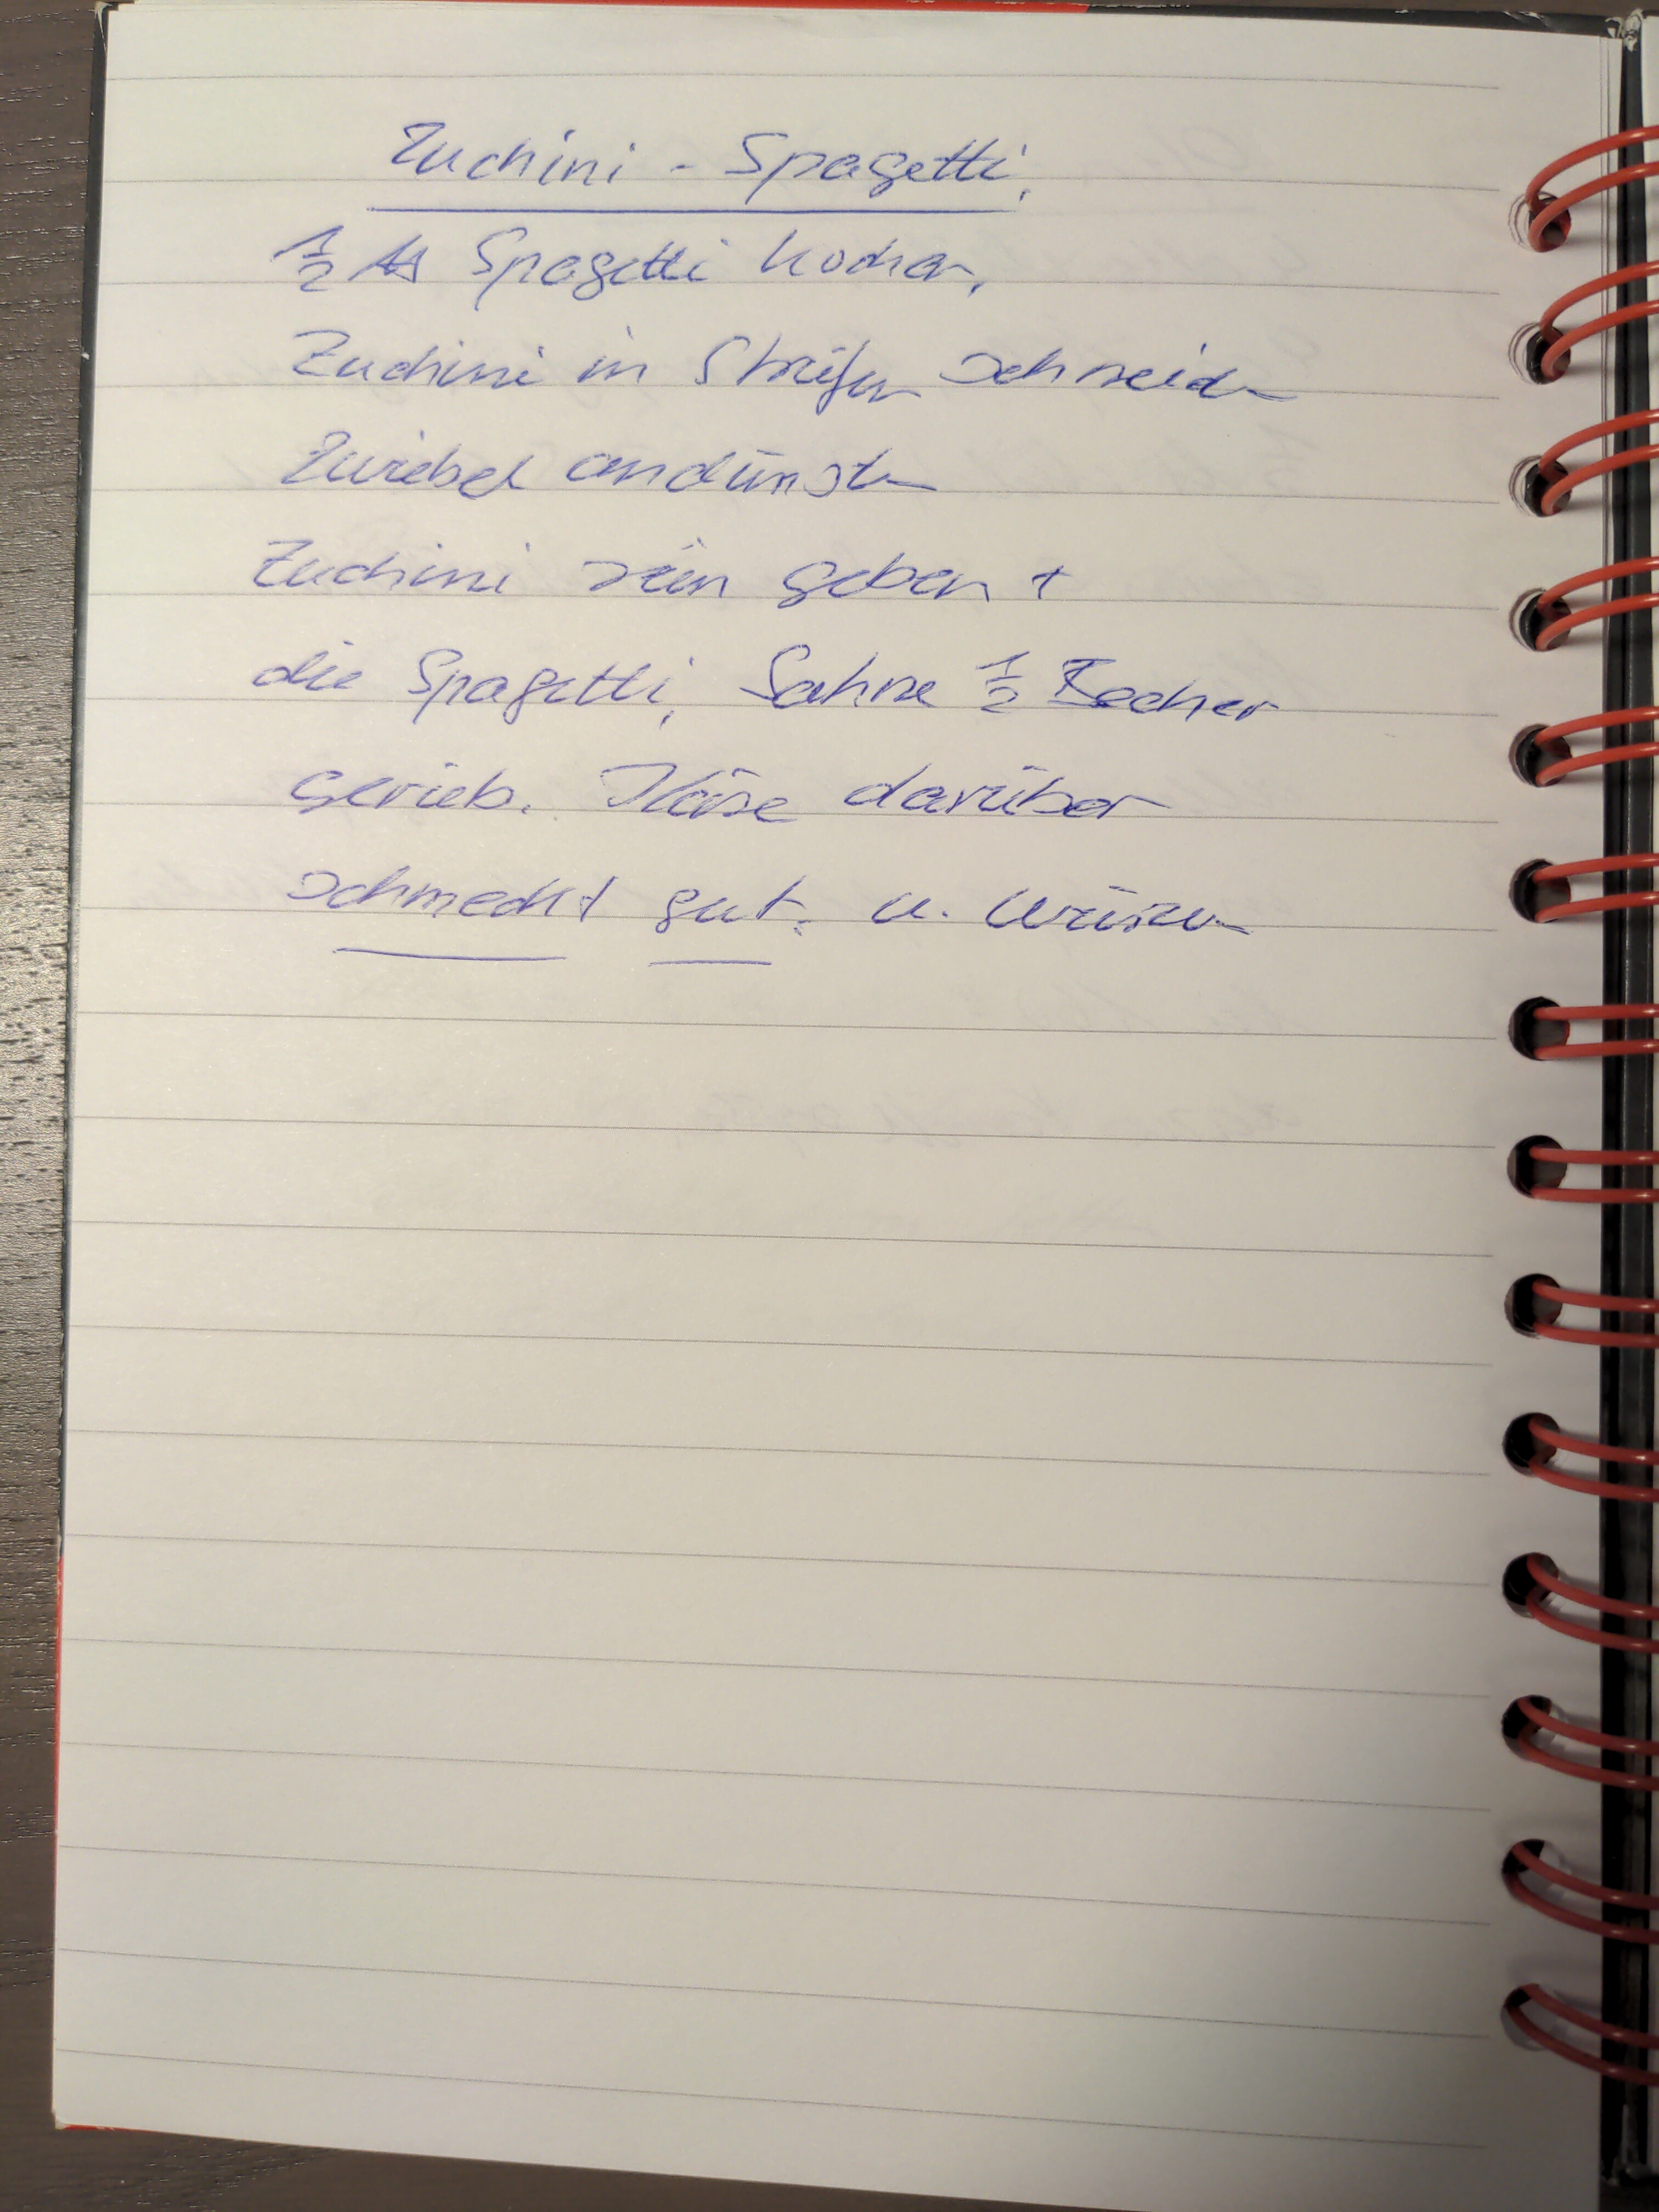 Zuchini - Spagetti,
1/2 ℔ Spagetti kochen,
Zuchini in Streifen schneiden
Zwiebel andünsten
Zuchini rein geben +
die Spagetti, Sahne 1/2 Becher
gerieb. Käse darüber
schmeckt gut. u. würzen